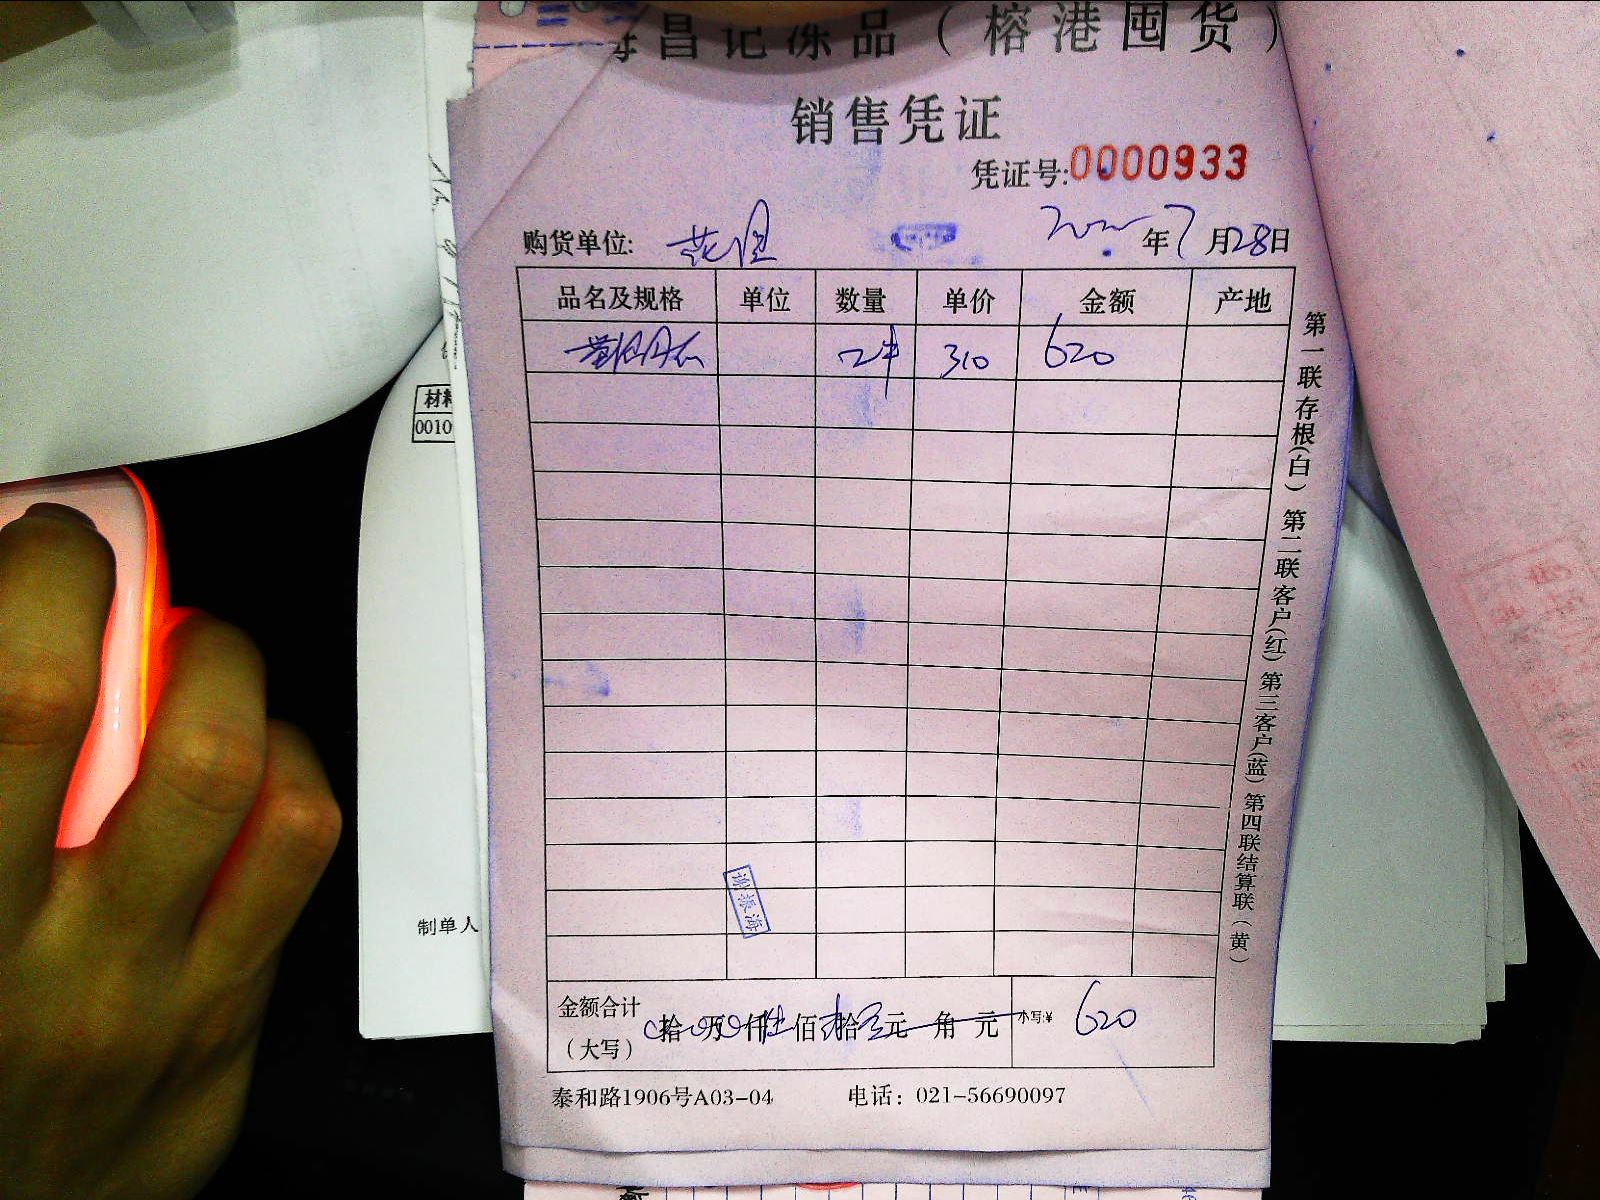 昌记冻品（榕港囤货）
销售凭证
凭证号:0000933
购货单位: 年7月28日
品名及规格 单位 数量 单价 金额 产地
310 620
第一联存根(白) 第二联客户(红) 第三客户(蓝) 第四联结算联(黄)
材料
0010
谢振海
制单人
金额合计
(大写) 拾 万 仟 佰 拾 元 角 元 小写:¥ 620
泰和路1906号A03-04 电话：021-56690097